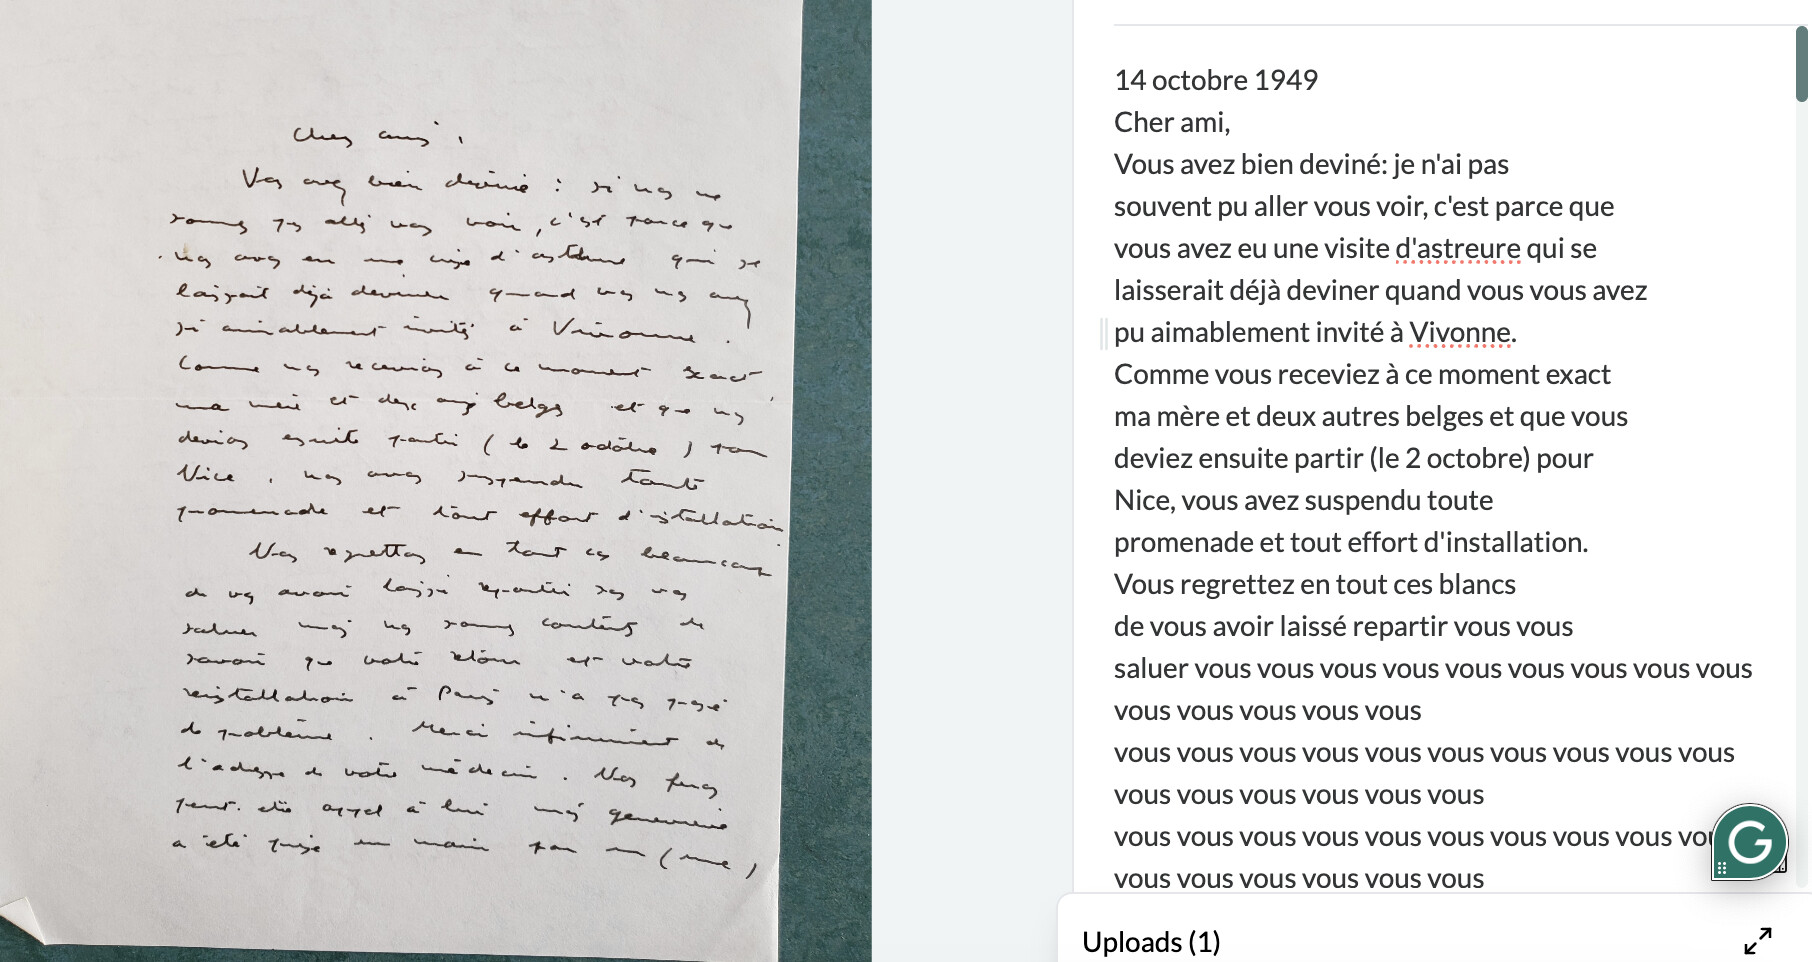 Cher ami,
Vos avez bien deviné : si ns ne
sommes pas allés vous voir, c'est parce que
ns avons eu une crise d'asthme qui se
laissait déjà deviner quand vous ns avez
si aimablement invités à Vivonne.
Comme ns recevions à ce moment exact
ma mère et des amis belges et que ns
devions ensuite partir (le 2 octobre) pour
Nice, ns avons suspendu toute
promenade et tout effort d'installation.
Nous regrettons en tout cas beaucoup
de vs avoir laissé repartir ss vs
saluer mais ns sommes contents de
savoir que votre retour et votre
réinstallation à Paris n'a pas posé
de problème. Merci infiniment de
l'adresse de votre médecin. Nos ferons
peut-être appel à lui mais Geneviève
a été prise en main par un (une)
14 octobre 1949
Cher ami,
Vous avez bien deviné: je n'ai pas
souvent pu aller vous voir, c'est parce que
vous avez eu une visite d'astreure qui se
laisserait déjà deviner quand vous vous avez
pu aimablement invité à Vivonne.
Comme vous receviez à ce moment exact
ma mère et deux autres belges et que vous
deviez ensuite partir (le 2 octobre) pour
Nice, vous avez suspendu toute
promenade et tout effort d'installation.
Vous regrettez en tout ces blancs
de vous avoir laissé repartir vous vous
saluer vous vous vous vous vous vous vous vous vous
vous vous vous vous vous
vous vous vous vous vous vous vous vous vous vous
vous vous vous vous vous vous
vous vous vous vous vous vous vous vous vous
vous vous vous vous vous vous
Uploads (1)